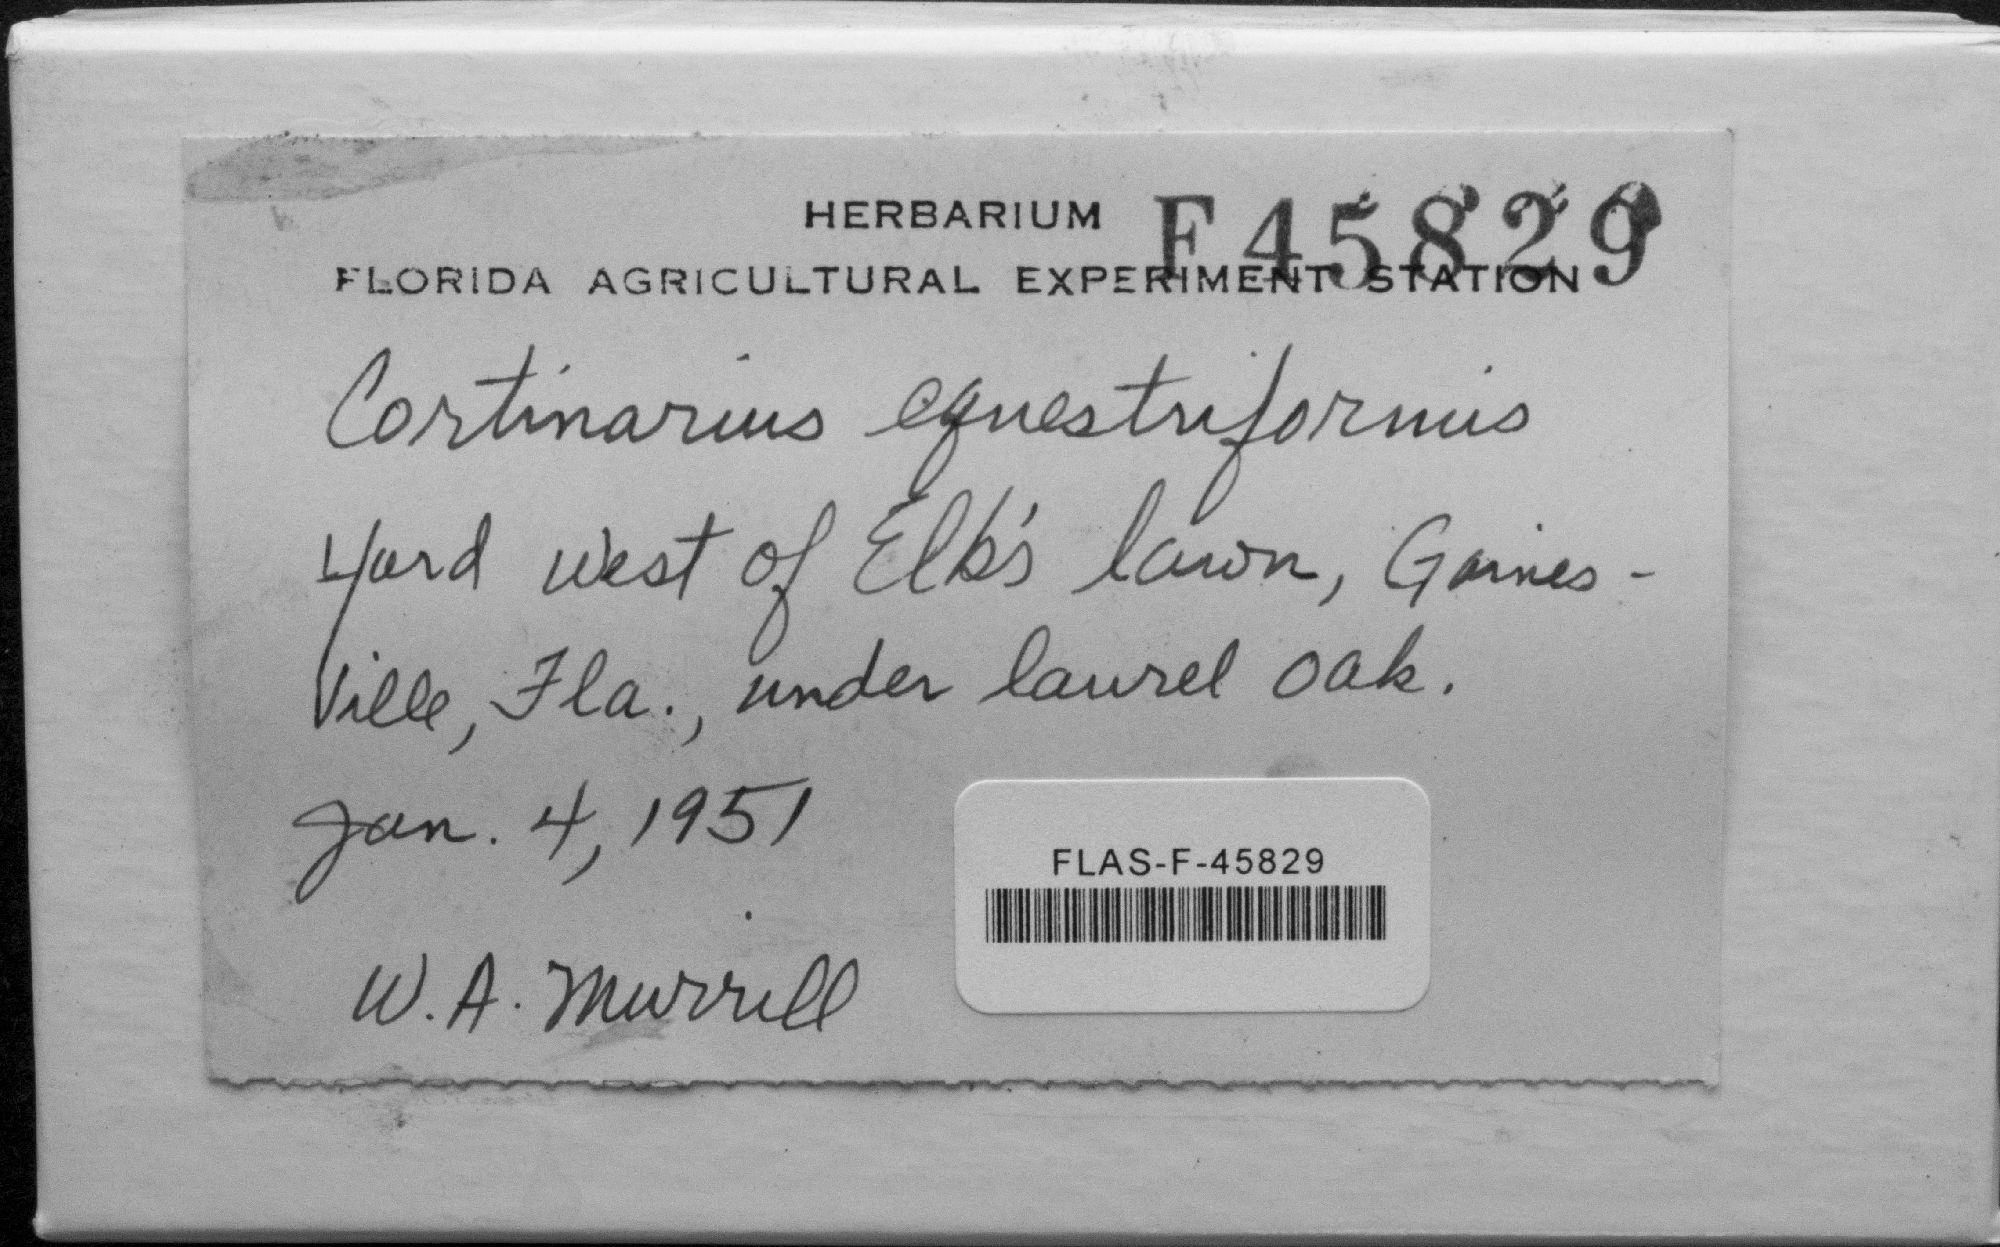 HERBARIUM F45829
FLORIDA AGRICULTURAL EXPERIMENT STATION
Cortinarius equestriformis
Yard west of Elk's lawn, Gaines-
ville, Fla., under laurel oak.
Jan. 4, 1951
FLAS-F-45829
W. A. Murrill